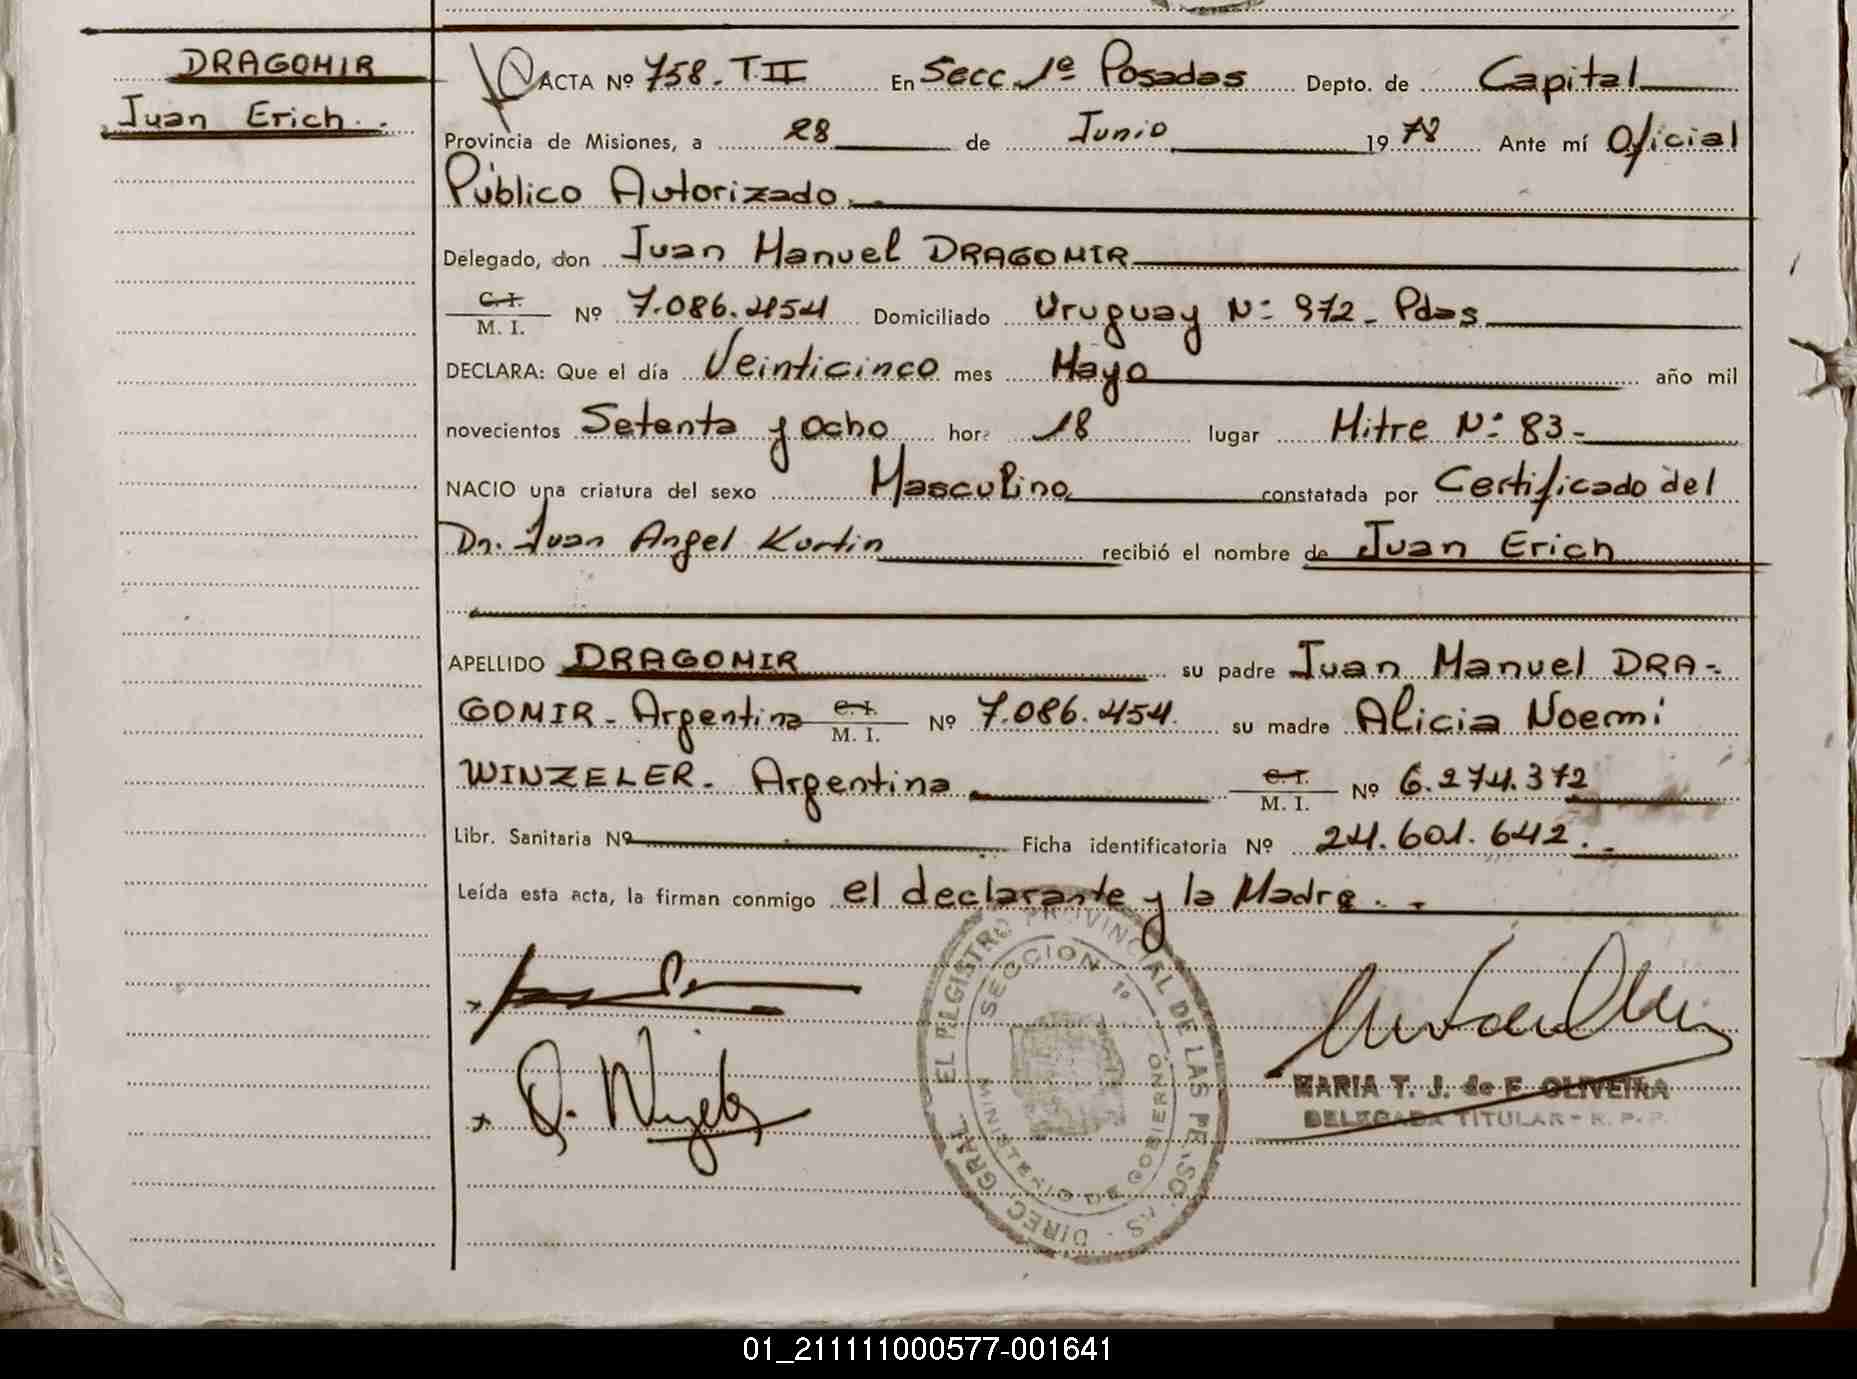 DRAGOMIR
Juan Erich.
ACTA Nº 758. T. II En Secc. 1ª Posadas Depto. de Capital
Provincia de Misiones, a 28 de Junio 19 78 Ante mí Oficial
Público Autorizado.
Delegado, don Juan Manuel DRAGOMIR
C. I.
M. I. Nº 7.086.454 Domiciliado Uruguay Nº 972 - Pdas
DECLARA: Que el día Veinticinco mes Mayo año mil
novecientos Setenta y Ocho hora 18 lugar Mitre Nº 83-
NACIO una criatura del sexo Masculino constatada por Certificado del
Dr. Juan Angel Kurtin recibió el nombre de Juan Erich
APELLIDO DRAGOMIR su padre Juan Manuel DRA-
GOMIR - Argentina C. I. M. I. Nº 7.086.454. su madre Alicia Noemi
WINZELER - Argentina C. I. M. I. Nº 6.274.372
Libr. Sanitaria Nº Ficha identificatoria Nº 24.601.642.
Leída esta acta, la firman conmigo el declarante y la Madre.
DIREC. GRAL. DEL REGISTRO PROVINCIAL DE LAS PERSONAS
SECCION 1ª
MINISTERIO DE GOBIERNO
MARIA T. J. de F. OLIVEIRA
DELEGADA TITULAR - R. P. P.
01_211111000577-001641